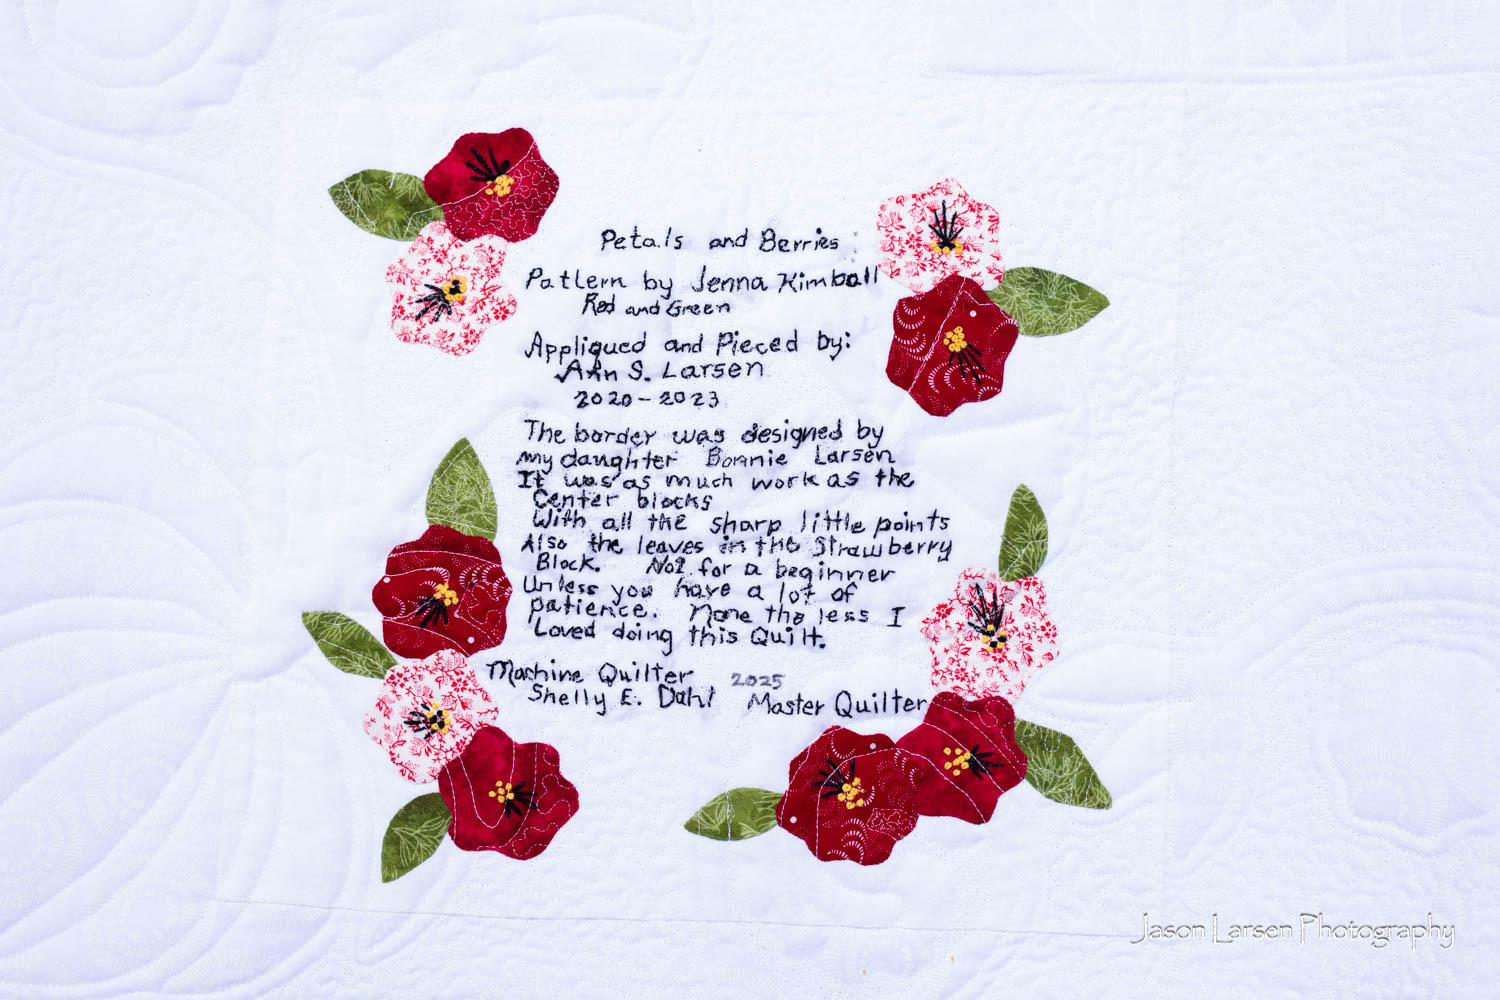 Petals and Berries
Pattern by Jenna Kimball
Red and Green
Appliqued and Pieced by:
Ann S. Larsen
2020-2023
The border was designed by
my daughter Bonnie Larsen
It was as much work as the
Center blocks
With all the sharp little points
Also the leaves in the Strawberry
Block. Not for a beginner
Unless you have a lot of
patience. None the less I
Loved doing this Quilt.
Machine Quilter 2025
Shelly E. Dahl Master Quilter
Jason Larsen Photography